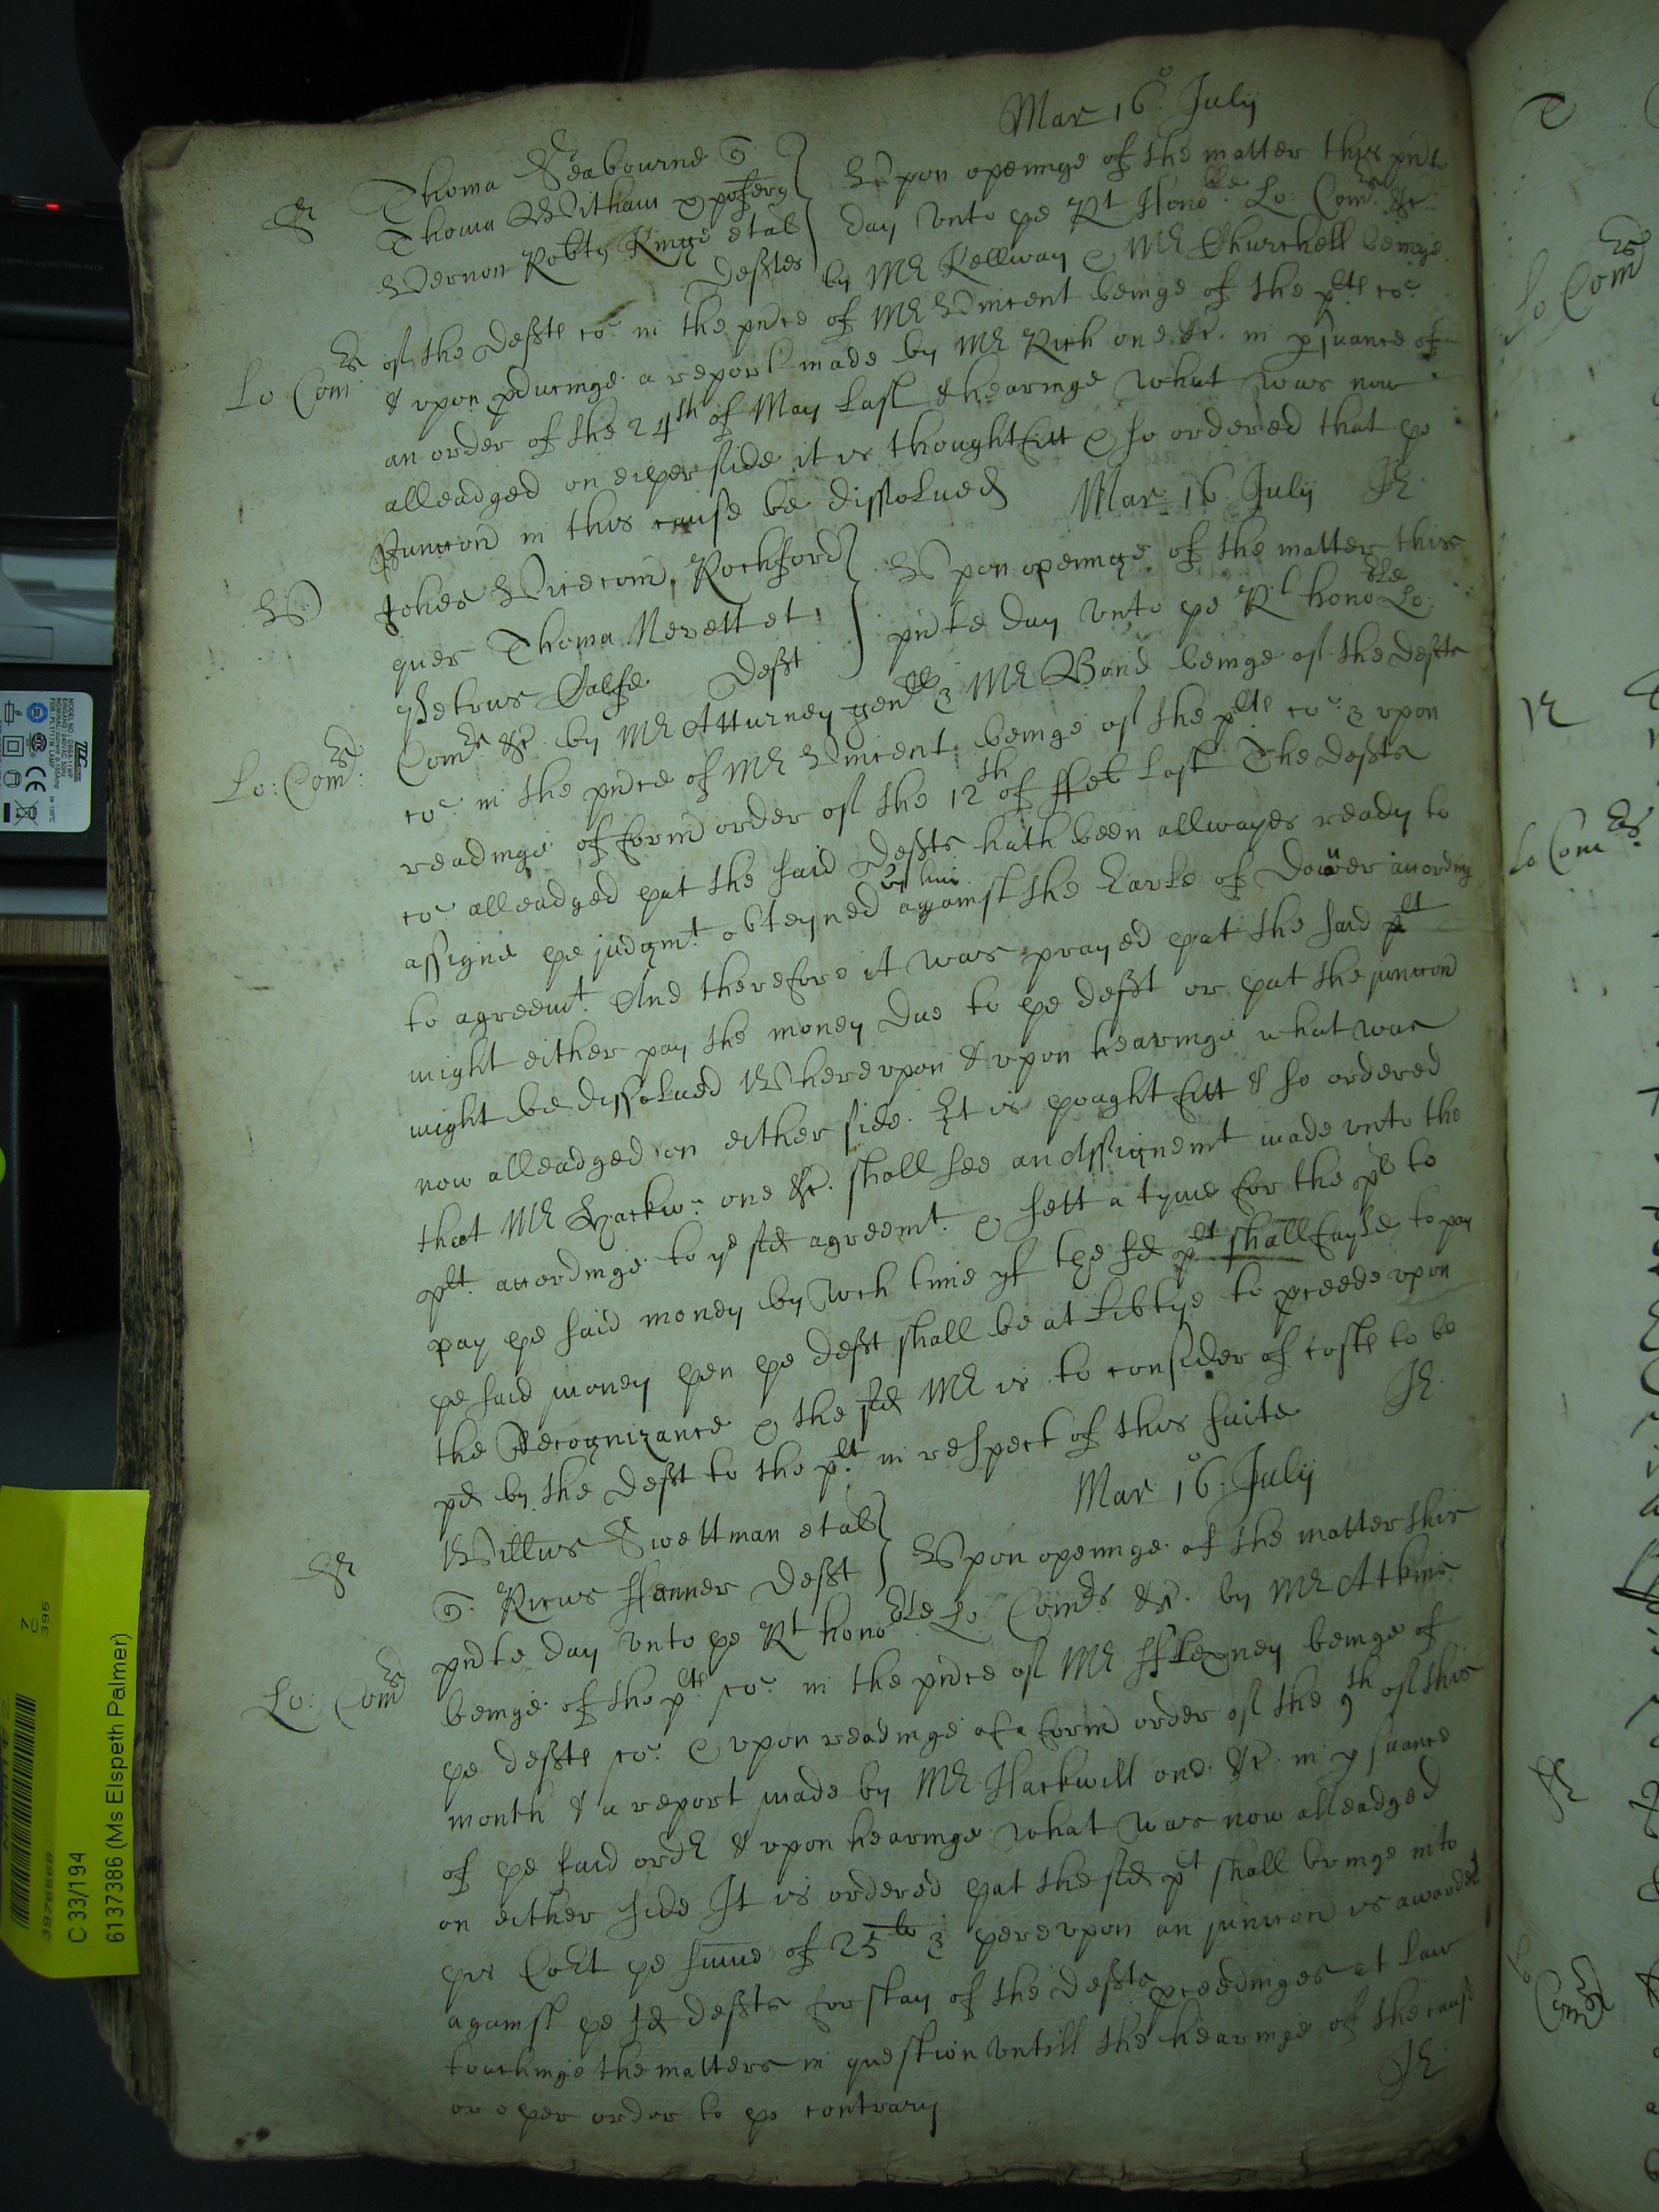 Mar 16o July
S Thoma Seabourne q
Thoma Witham & pos Jerg
Vernon Robtg Kinge et al Deftes
Upon openinge of the matter this pnte
day vnto þe Rt Honoble Lo: Comrs &c
by Mr Kellway & Mr Churchell beinge
Lo Comrs of the Deftes co: in the pnce of Mr Vincent beinge of the pltes co:
& vpon pducinge a report made by Mr Rich one &c. in psuance of
an order of the 24th of May last & hearinge what was now
alleadged on eiþer side it is thought fitt & so ordered that þe
Iunccon in this cause be dissolued
JE
Mar: 16 July
V Johes Vicecom Rochford
quer Thoma Nevett et
Petrus Salfe Deft
Upon openinge of the matter this
pnte day vnto þe Rt honoble Lo:
Lo: Comrs Comrs &c. by Mr Atturney genrll & Mr Bond beinge of the Defts
co: in the pnce of Mr Vincent beinge of the pltes co: & vpon
readinge of form order of the 12th of ffeb last The Defts
co: alleadged þat the said Defts hath been allwayes ready to
assigne þe judgmt obteyned by him against the Earle of Douer accordinge
to agreemt. And therefore it was prayed þat the said plt
might either pay the money due to þe deft or þat the junccon
might be dissolued Wherevpon & vpon hearinge what was
now alleadged on either side. It is þought fitt & so ordered
that Mr Hackw: one &c. shall see an Assignemt made vnto the
plt. accordinge to ye sd agreemt. & sett a tyme for the pl to
pay þe said money by wch time yf the sd plt shall fayle to pay
þe said money þen þe deft shall be at libtye to pceede vpon
the Recognizance & the sd Mr is to consider of costs to be
pd by the Deft to the plt in respect of this suite
JE
Mar 16o July
S Willus Swettman et al
q. Ricus ffenner Deft
Upon openinge of the matter this
pnte day vnto þe Rt honoble Lo: Comrs &c. by Mr Atkins
Lo: Comrs beinge of the plts co: in the pnce of Mr beinge of
þe defts co: & vpon readinge of a form order of the 9th of this
month & a report made by Mr Hackwill one &c. in psuance
of þe said ordr & vpon hearinge what was now alleadged
on either side It is ordered þat the sd plt shall bringe into
þis Cort þe sume of 25li & þerevpon an junccon is awarded
against þe sd defts for stay of the Defts pceedinges at law
touchinge the matters in question vntill the hearinge of the cause
or oþer order to þe contrary
JE
C 33/194
6137386 (Ms Elspeth Palmer)
395